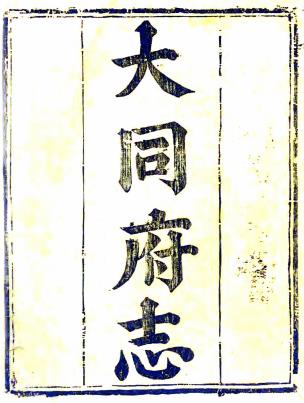 大同府志